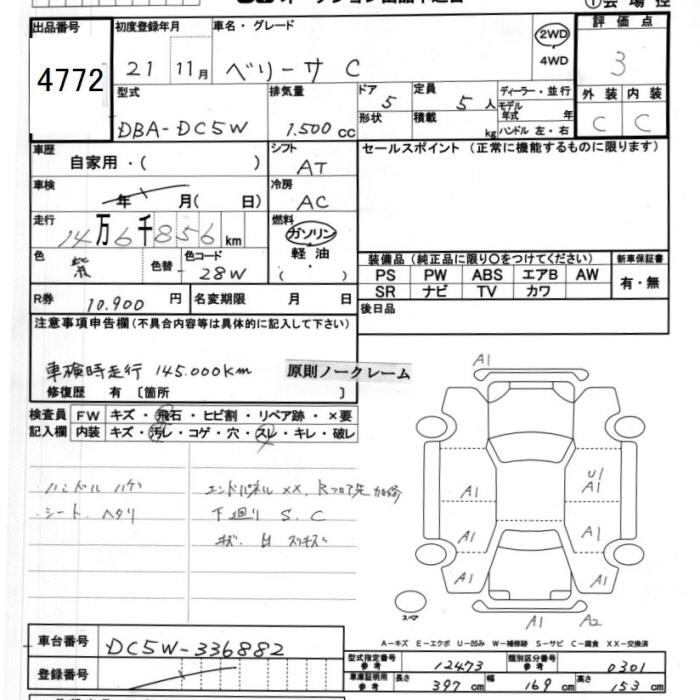 ①会場控
出品番号 初度登録年月 車名・グレード 2WD 評価点
4772 21 11月 ベリーサ C 4WD 3
型式 排気量 ドア 定員 ディーラー・並行 外装 内装
5 5人 モデル年式 年
DBA-DC5W 1.500cc 形状 積載 kg ハンドル 左・右 C C
車歴 シフト セールスポイント(正常に機能するものに限ります)
自家用・( ) AT
車検 冷房
年 月( 日) AC
走行 燃料
14万6千856km ガソリン
色 色替 色コード 軽油 装備品(純正品に限り○をつけてください) 新車保証書
紫 28W ( ) PS PW ABS エアB AW 有・無
SR ナビ TV カワ
R券 10.900円 名変期限 月 日 後日品
注意事項申告欄(不具合内容等は具体的に記入して下さい)
車検時走行 145.000km 原則ノークレーム
修復歴 有 [箇所 ]
検査員 FW キズ・飛石・ヒビ割・リペア跡・×要
記入欄 内装 キズ・汚レ・コゲ・穴・スレ・キレ・破レ
A1
U1
A1 A1
A1 A1
A1 A1
A1 A2
ハンドル ハゲ エンドパネル XX.
シート ヘタリ 下廻り S.C
キズ
スペア
A-キズ E-エクボ U-凹み W-補修跡 S-サビ C-腐食 XX-交換済
車台番号 DC5W-336882
型式指定番号 参考 12473 類別区分番号 参考 0301
登録番号 車庫証明用 参考 長さ 397cm 幅 169cm 高さ 153cm